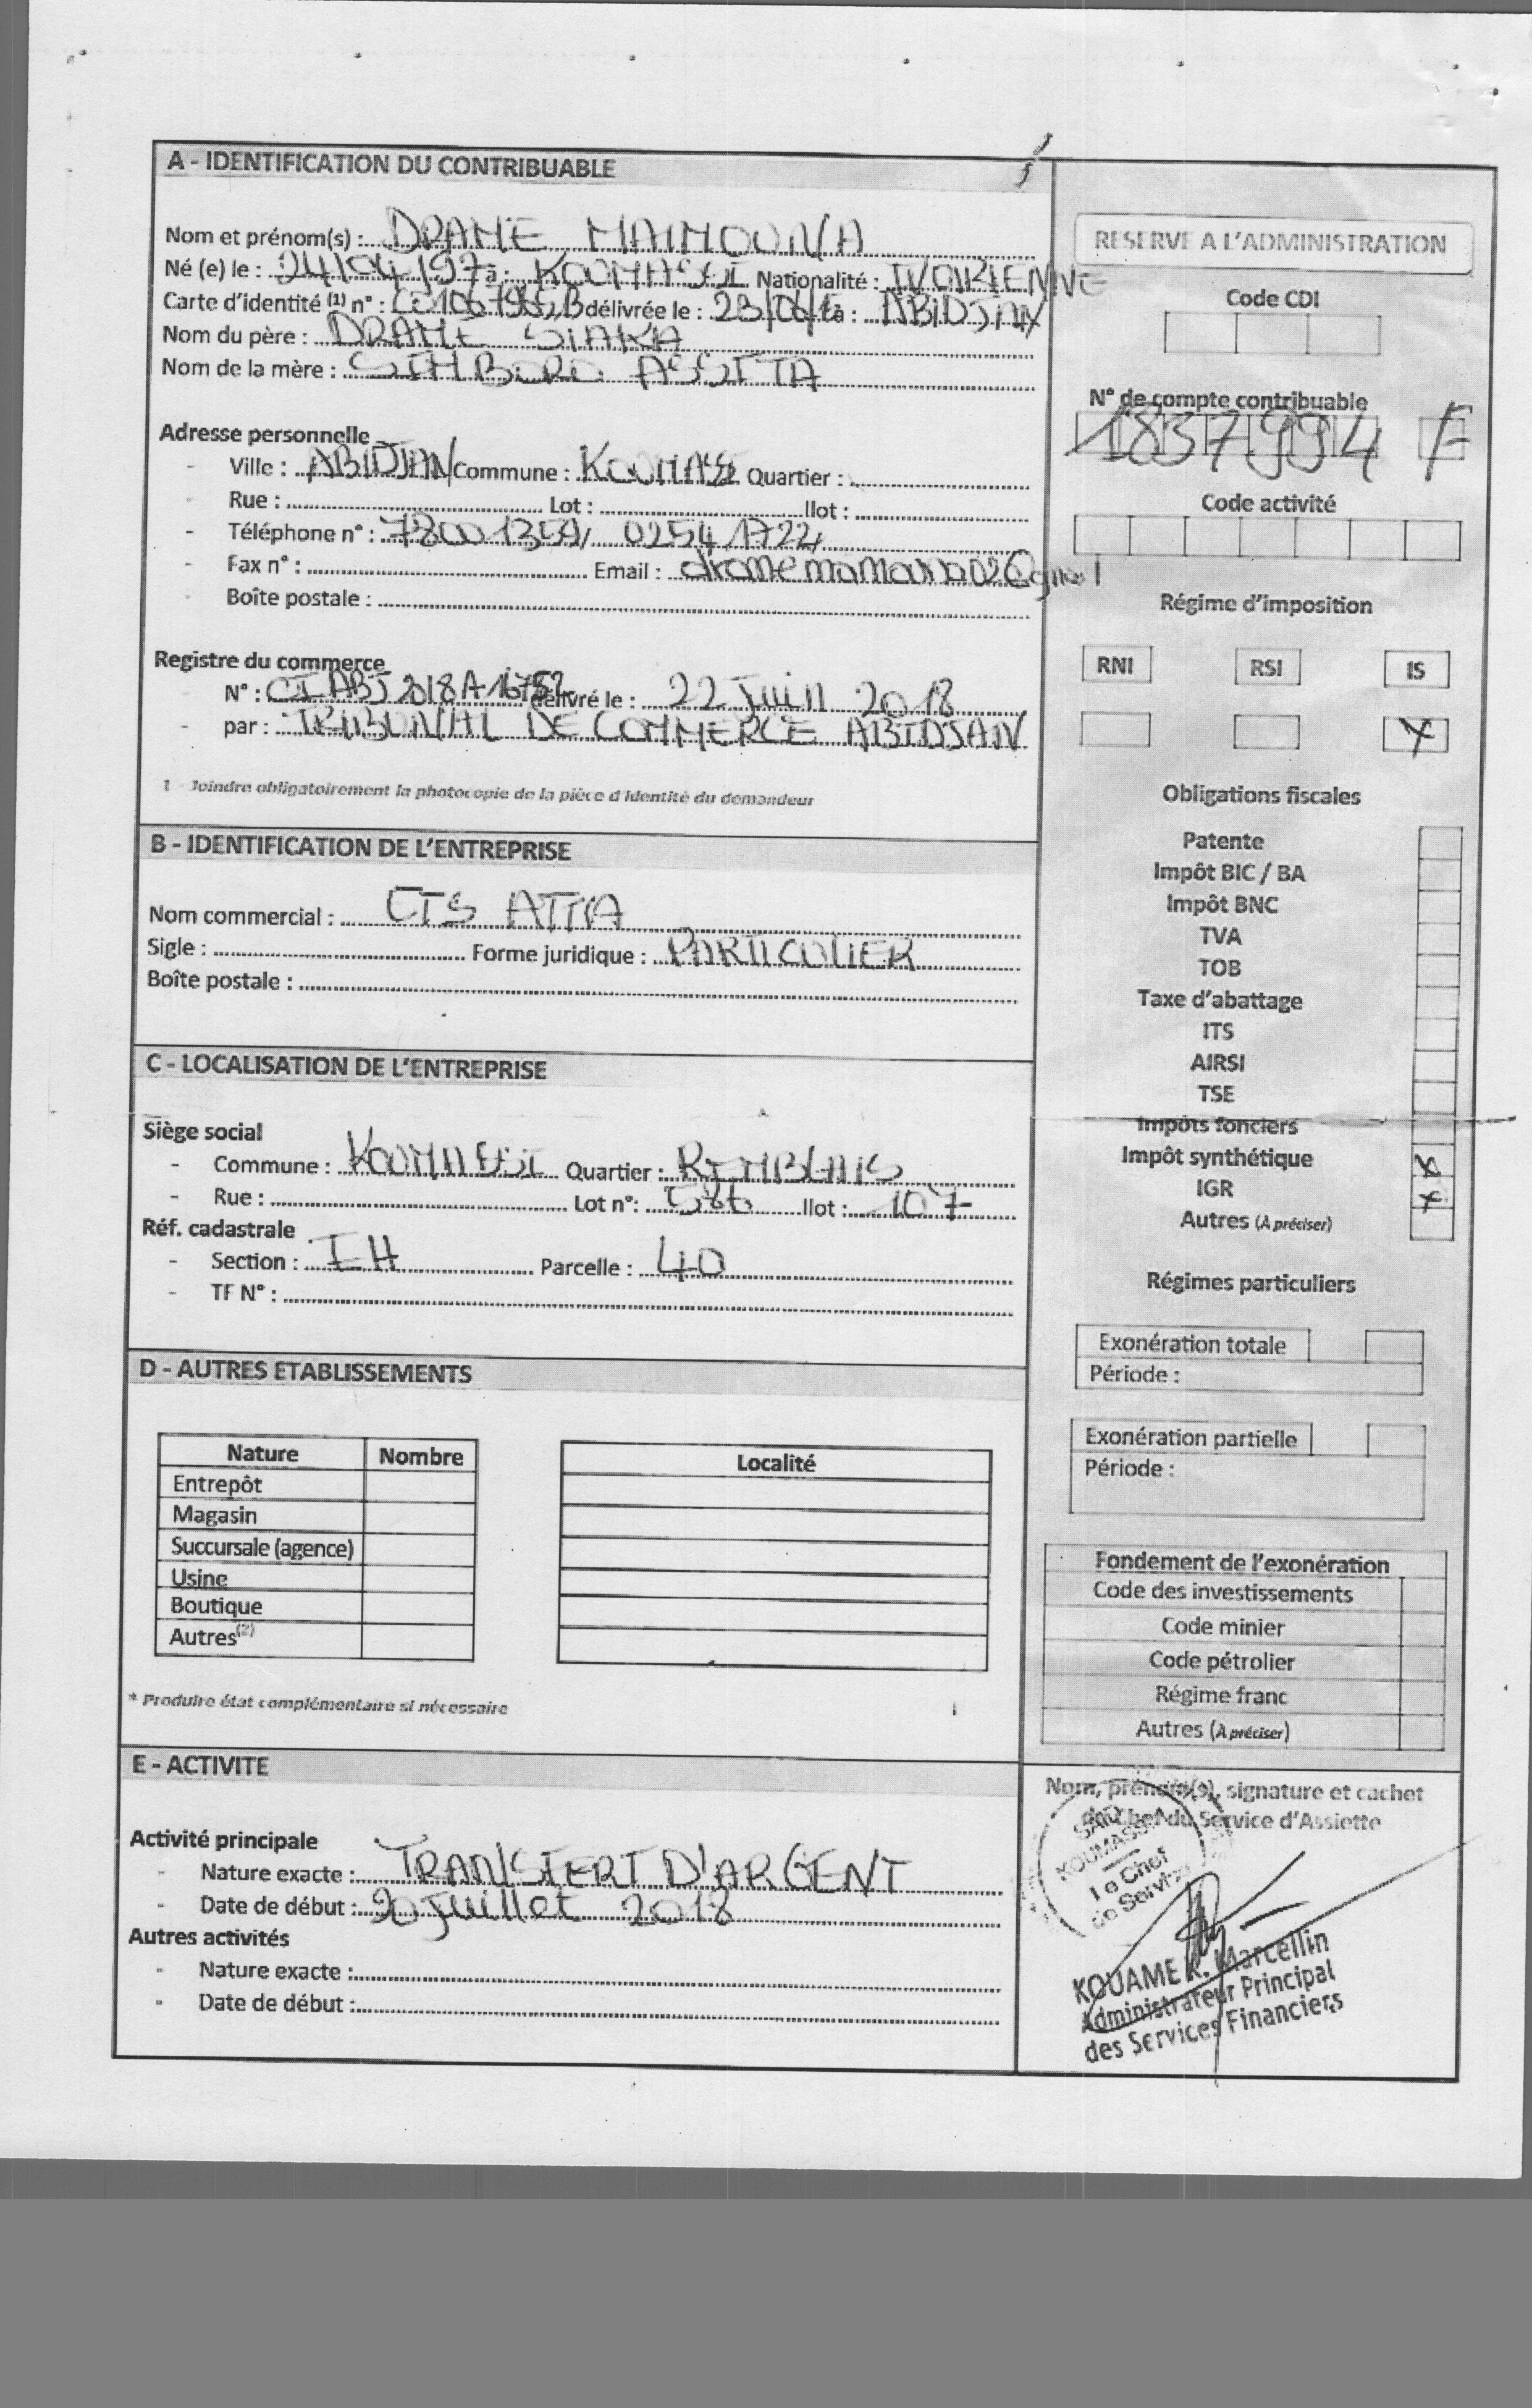 A - IDENTIFICATION DU CONTRIBUABLE
Nom et prénom(s) : DRAME MAIMOUNA
Né (e) le : 24/04/197 à : KOUMASSI Nationalité : IVOIRIENNE
Carte d'identité (1) n° : délivrée le : à : ABIDJAN
Nom du père : DRAME SIAKA
Nom de la mère : SIMBORO ASSITA
Adresse personnelle
- Ville : ABIDJAN Commune : KOUMASSI Quartier :
- Rue : Lot : Ilot :
- Téléphone n° : 78001359/ 02541722
- Fax n° : Email :
- Boîte postale :
Registre du commerce
N° : CI ABJ 2018 A 16752 délivré le : 22 Juin 2018
- par : TRIBUNAL DE COMMERCE ABIDJAN
1 - Joindre obligatoirement la photocopie de la pièce d'identité du demandeur
B - IDENTIFICATION DE L'ENTREPRISE
Nom commercial : ETS ATTA
Sigle : Forme juridique : PARTICULIER
Boîte postale :
C - LOCALISATION DE L'ENTREPRISE
Siège social
- Commune : KOUMASSI Quartier : REMBLAIS
- Rue : Lot n°: 586 Ilot : 107
Réf. cadastrale
- Section : IH Parcelle : 40
- TF N° :
D - AUTRES ETABLISSEMENTS
Nature Nombre Localité
Entrepôt
Magasin
Succursale (agence)
Usine
Boutique
Autres(2)
* Produire état complémentaire si nécessaire
E - ACTIVITE
Activité principale
- Nature exacte : TRANSFERT D'ARGENT
- Date de début : 20 Juillet 2018
Autres activités
- Nature exacte :
- Date de début :
RESERVE A L'ADMINISTRATION
Code CDI
N° de compte contribuable
1837994 F
Code activité
Régime d'imposition
RNI RSI IS
X
Obligations fiscales
Patente
Impôt BIC / BA
Impôt BNC
TVA
TOB
Taxe d'abattage
ITS
AIRSI
TSE
Impôts fonciers
Impôt synthétique X
IGR X
Autres (A préciser)
Régimes particuliers
Exonération totale
Période :
Exonération partielle
Période :
Fondement de l'exonération
Code des investissements
Code minier
Code pétrolier
Régime franc
Autres (A préciser)
Nom, prénom(s), signature et cachet
du Chef du Service d'Assiette
KOUMASSI
Le Chef
de Service
KOUAME K. Marcellin
Administrateur Principal
des Services Financiers